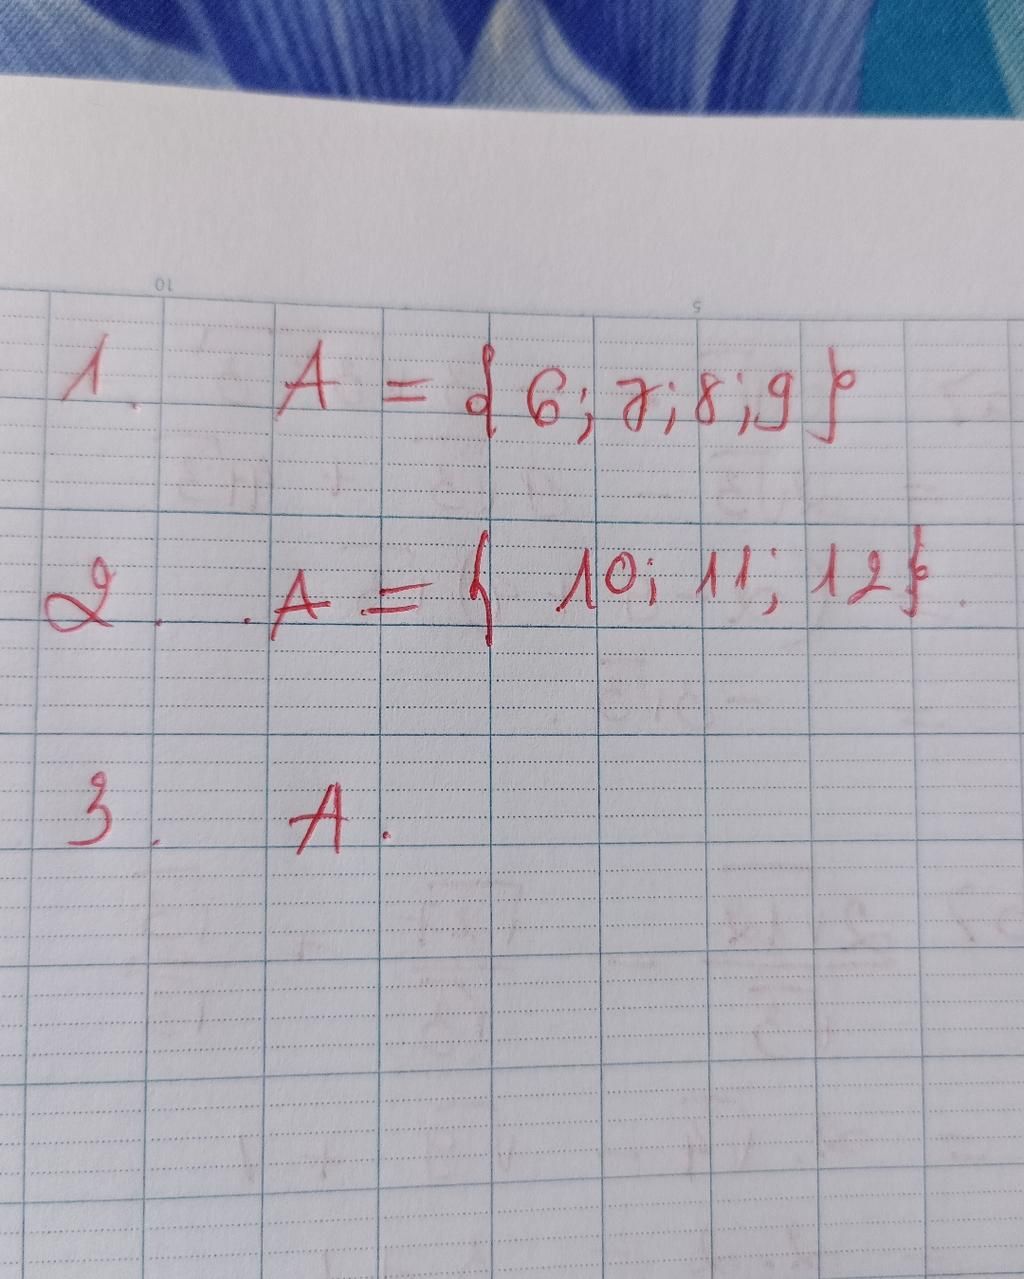 10 5
1. A = { 6; 7; 8; 9 }
2. A = { 10; 11; 12 }.
3. A.